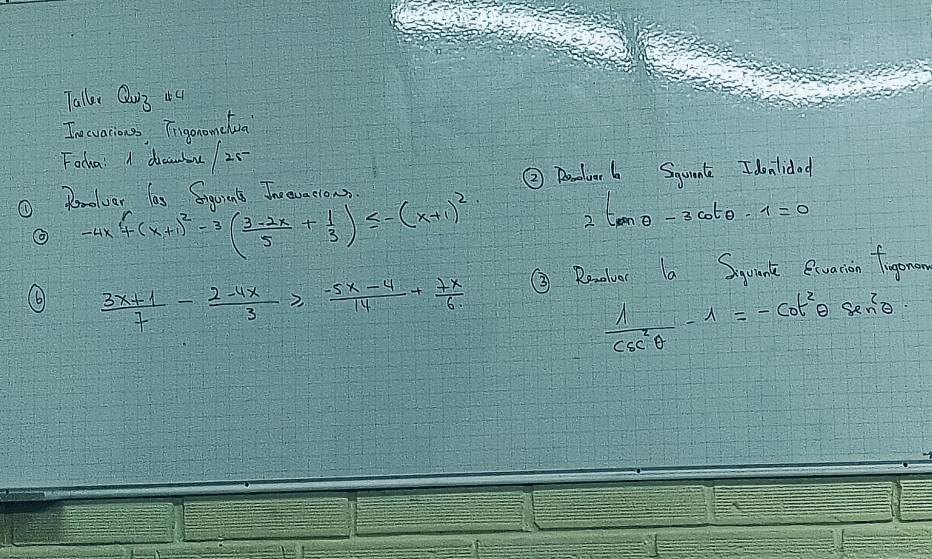 Taller Quiz #4
Inecuaciones, Trigonometria
Fecha: 1 diciembre / 25
① Resolver las Siguients Inecuacions.
ⓐ -4x + (x+1)² - 3((3-2x)/5 + 1/3) ≤ -(x+1)².
ⓑ (3x+1)/7 - (2-4x)/3 ≥ (-5x-4)/14 + 7x/6.
② Resolver la Siguiente Identidad
2 tan θ - 3 cot θ - 1 = 0
③ Resolver la Siguiente Ecuación Trigonom
1/csc²θ - 1 = -cot²θ sen²θ.